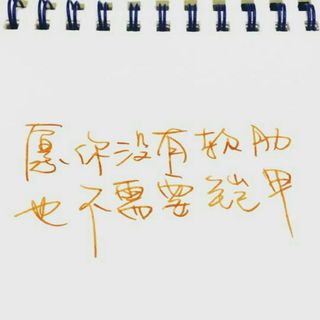 愿你没有软肋
也不需要铠甲